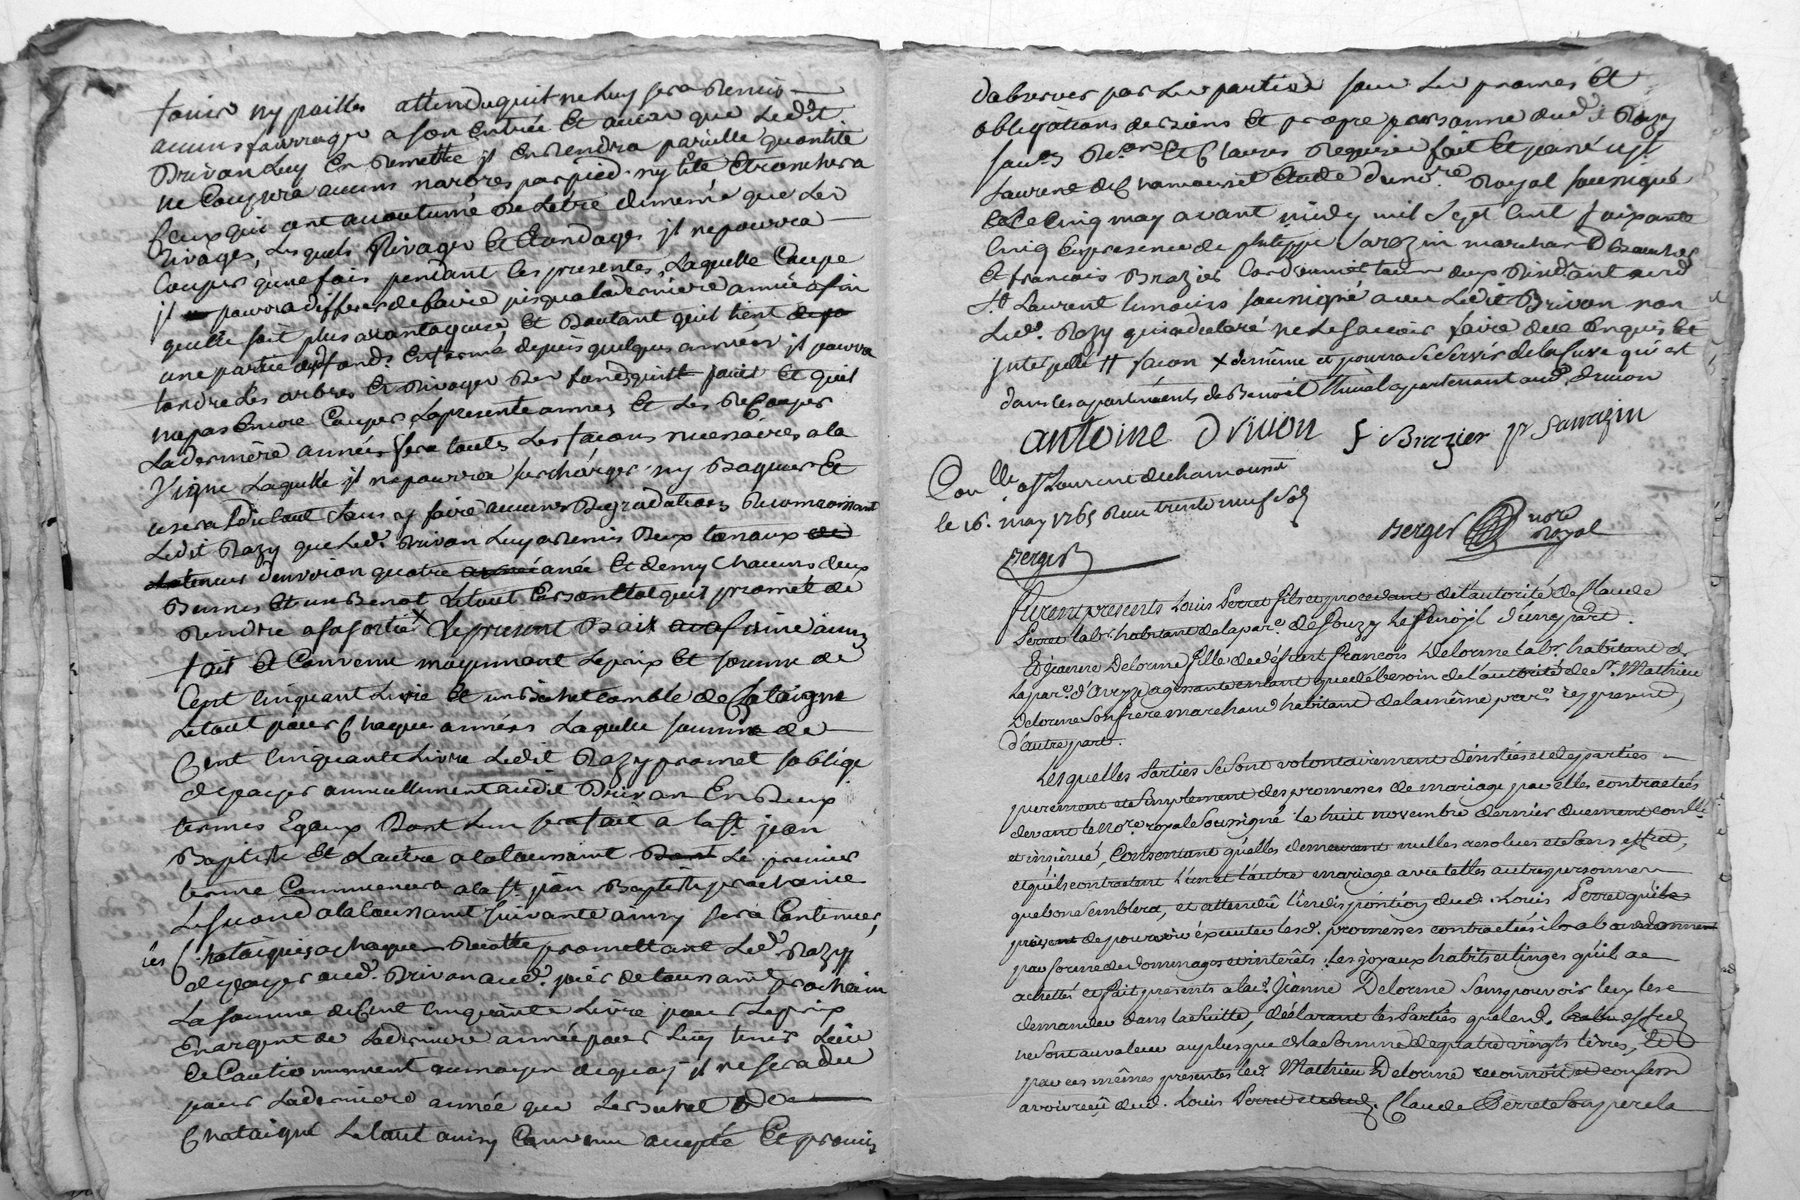 foins ny pailles attendu quil ne luy sera Remis
aucuns fourrages a son Entrée Et au cas que Ledit
Drivon Luy En Remette jl En Rendra pareille quantité
ne Coupera aucuns narbres par pied ny tête Et ranchera
Ceux qui ont accoutumé De Letre de même que Les
Rivages, Lesquels Rivages Et Etrondages jl ne pourra
Couper qu'une fois pendant les presentes, Laquelle Coupe
jl pourra differer de faire jusqua la derniere année afin
quelle soit plus avantageuse, Et Dautant quil tient
une partie desd. fonds En ferme depuis quelques années jl pourra
tondre Les arbres Et Rivages Des fonds quil jouit Et quil
na pas Encore Coupés La presente année Et Les ReCouper
La derniere année, fera toutes Les façons necessaires a la
Vigne Laquelle jl ne pourra surcharger ny Baquer Et
usera Du tout sans y faire aucunes Degradations Reconnoissant
Ledit Razy que Led. Drivon Luy a Remis Deux tonaux de
La tenue d'environ quatre anée Et demy Chacuns deux
Bennes Et un Benot Le tout En bon Etat quil promet de
Rendre a sa sortie X Le present Bail ainsy
fait Et Convenu moyennant Le prix Et somme de
Cent Cinquant Livre Et un Bichet comble de Chataigne
Le tout pour Chaque années Laquelle somme de
Cent Cinquante Livre Ledit Razy promet s'oblige
de payer annuellement audit Drivon En Deux
termes Egaux Dont Lun sera fait a la St jean
Baptiste Et Lautre a la toussaint Dont Le premier
terme Commencera a la St jean Baptiste prochaine
Le second a la toussaint suivante ainsy sera Continuer,
les Chataignes a chaque Recolte promettant Led. Razy
de payer aud. Drivon aud. jour de toussaint prochain
La somme de Cent Cinquante Livre pour Le prix
En argent de La derniere année pour Luy tenir Lieu
de Cautionnement au moyen de quoy jl ne sera du
pour La derniere année que Le Bichet De
Chataigne Le tout ainsy Convenu accepté Et promis
d'observer par Les parties sous Les promes Et
obligations de biens Et propre personne dud. Razy
soum. Ren. Et Clauses Requises fait Et passé a St
Laurent de Chamousset Etude du nore Royal soussigné
Ce Cinq may avant midy mil Sept Cent soixante
Cinq En presence de philippe Sarazin marchand
Et francois Brazier Cordonnier tous deux Residant aud.
St. Laurent temoins soussigné avec Ledit Drivon non
Led. Razy qui a declaré ne Le savoir faire de ce Enquis Et
jnterpellé # façon X de même et pourra se Servir de la Cuve qui est
dans les apartements de Benoit Thival apartenant aud. drivon
antoine drivon f Brazier p Sarrazin
Con.lle a St Laurent de chamousset
le 16. may 1765 Reçu trente neuf Sols
Berger
Berger nore Royal
Furent presents Louis Perret fils et procedant de l'autorité de Claude
Perret labr. habitant de la par.e de Souzy d'une part.
Et Jeanne Delorme fille de defunt françois Delorme labr. habitant de
la par.e d'Aveyze agissante entant que de besoin de l'autorité de Sr. Mathieu
Delorme son frere marchand habitant de la même par.e icy present
d'autre part.
Lesquelles Parties se sont volontairement désistées et departies
purement et simplement des promesses de mariage par elles contractées
devant le nore. royal soussigné le huit novembre dernier duement conllé
et insinué, Consentant qu'elles demeurent nulles resolues et sans effet,
et qu'ils contractent l'un et l'autre mariage avec telles autres personnes
que bon semblera, et attendu l'indisposition dud. Louis Perret qui
de pouvoir éxécuter lesd. promesses contractées il a abandonné
par forme de dommages et interêts les joyaux habits et linges qu'il a
achettés et fait presents a lad. Jeanne Delorme sans pouvoir les lui
demander dans la suitte, déclarant les Parties que lesd. effets
ne sont au valeur au plus que de la somme de quatre vingts livres,
par ces mêmes presentes led. Mathieu Delorme reconnoit et confesse
avoir reçu dud. Louis Perret et dud. Claude Perret son pere la